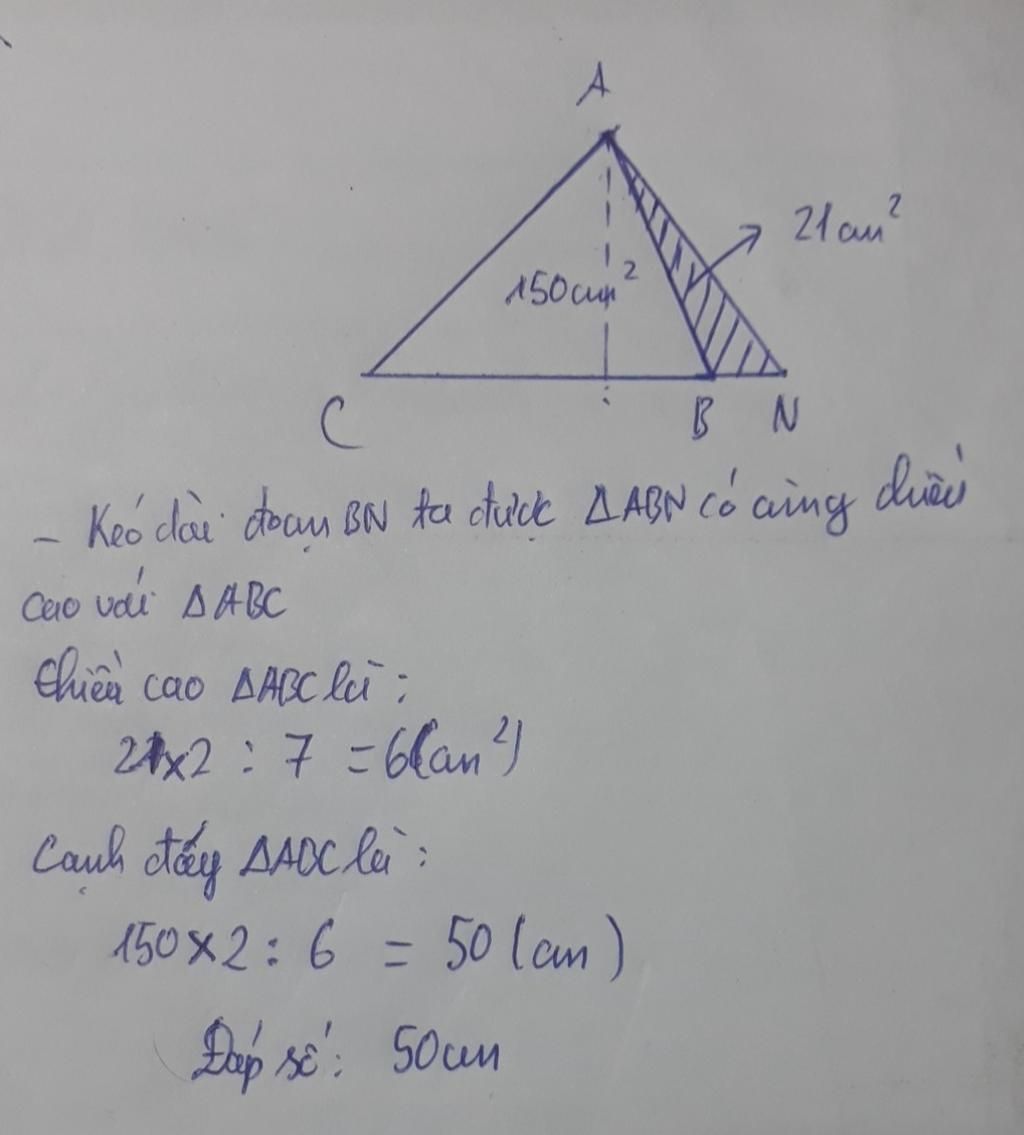 A
21cm²
150cm²
C B N
- Kéo dài đoạn BN ta được ΔABN có cùng chiều
cao với ΔABC
Chiều cao ΔABC là:
21x2 : 7 = 6(cm²)
Cạnh đáy ΔABC là:
150 x 2 : 6 = 50 (cm)
Đáp số: 50cm